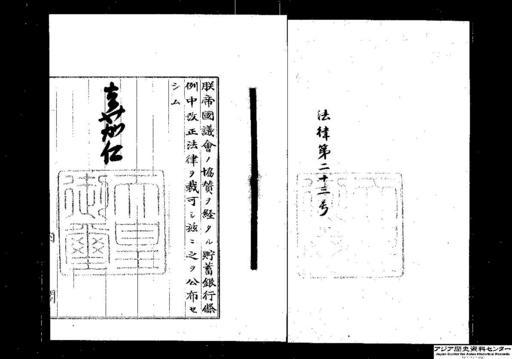 法律第二十三号
朕帝國議會ノ協賛ヲ経タル貯蓄銀行條
例中改正法律ヲ裁可シ茲ニ之ヲ公布セ
シム
嘉仁
天皇
御璽
内閣
アジア歴史資料センター
Japan Center for Asian Historical Records